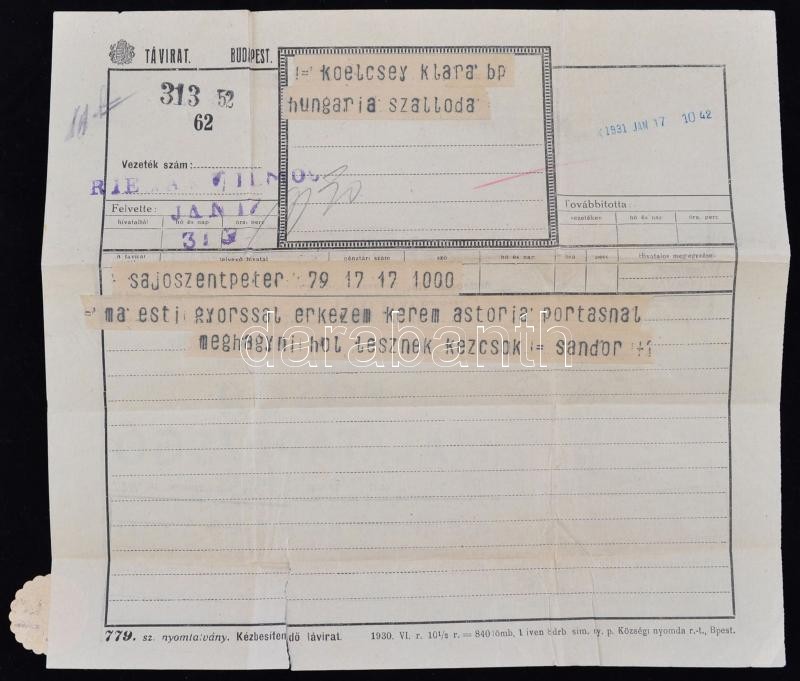 TÁVIRAT. BUDAPEST.
313 52
62
!=' koelcsey klara bp
hungaria szalloda
1931 JAN 17 10 42
Vezeték szám:
Felvette:
JAN 17
hivataltól hó és nap óra, perc
313
Továbbította:
vezetéken hó és nap óra, perc
felvevő hivatal pénztári szám szó hó perc Hivatalos megjegyzése:
sajoszentpeter 79 17 17 1000
=' ma esti gyorssal erkezem kerem astoria portasnal
meghagyni hol lesznek kezcsok != sandor
darabanth
779. sz. nyomtatvány. Kézbesitendő távirat. 1930. VI. r. Községi nyomda r.-t., Bpest.